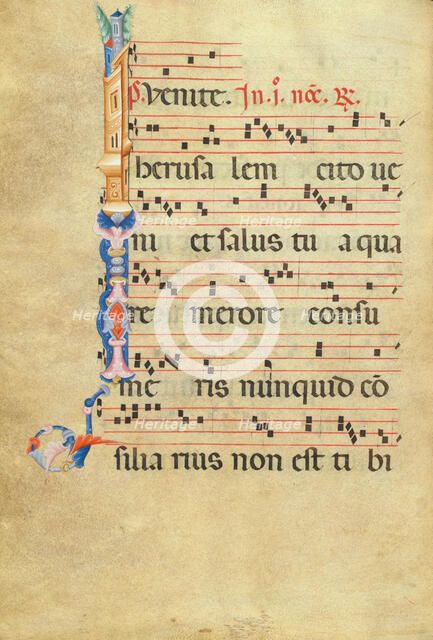 p. Venite. In .j. noc̄. R.
Iherusa lem cito ue
ni et salus tu a qua
re merore consu
me ris nunquid cō
silia rius non est ti bi
Heritage
Heritage
Heritage
Heritage
Heritage
Heritage
Heritage
Heritage